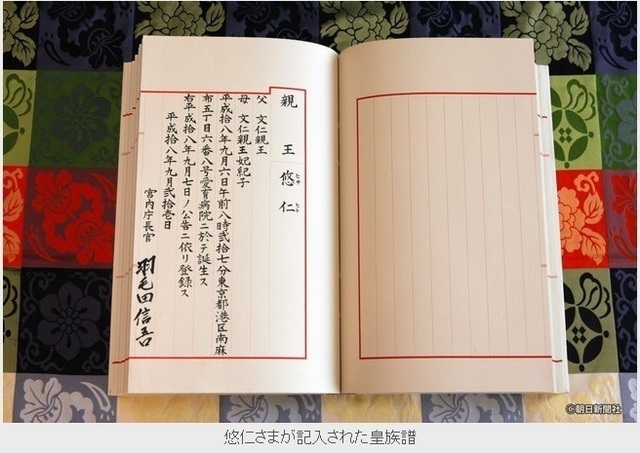 親王悠仁
ヒサ ヒト
父 文仁親王
母 文仁親王妃紀子
平成拾八年九月六日午前八時弐拾七分東京都港区南麻
布五丁目六番八号愛育病院ニ於テ誕生ス
右平成拾八年九月七日ノ公告ニ依リ登録ス
平成拾八年九月弐拾壱日
宮内庁長官 羽毛田信吾
©朝日新聞社
悠仁さまが記入された皇族譜